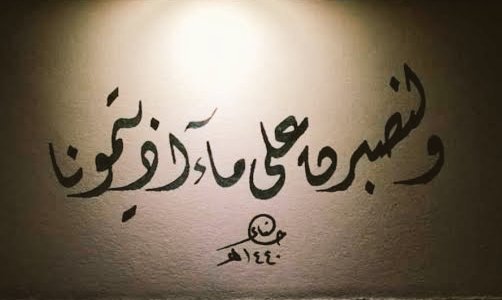 ولنصبرن على مآءاذيتمونا
حنان
١٤٤٠هـ